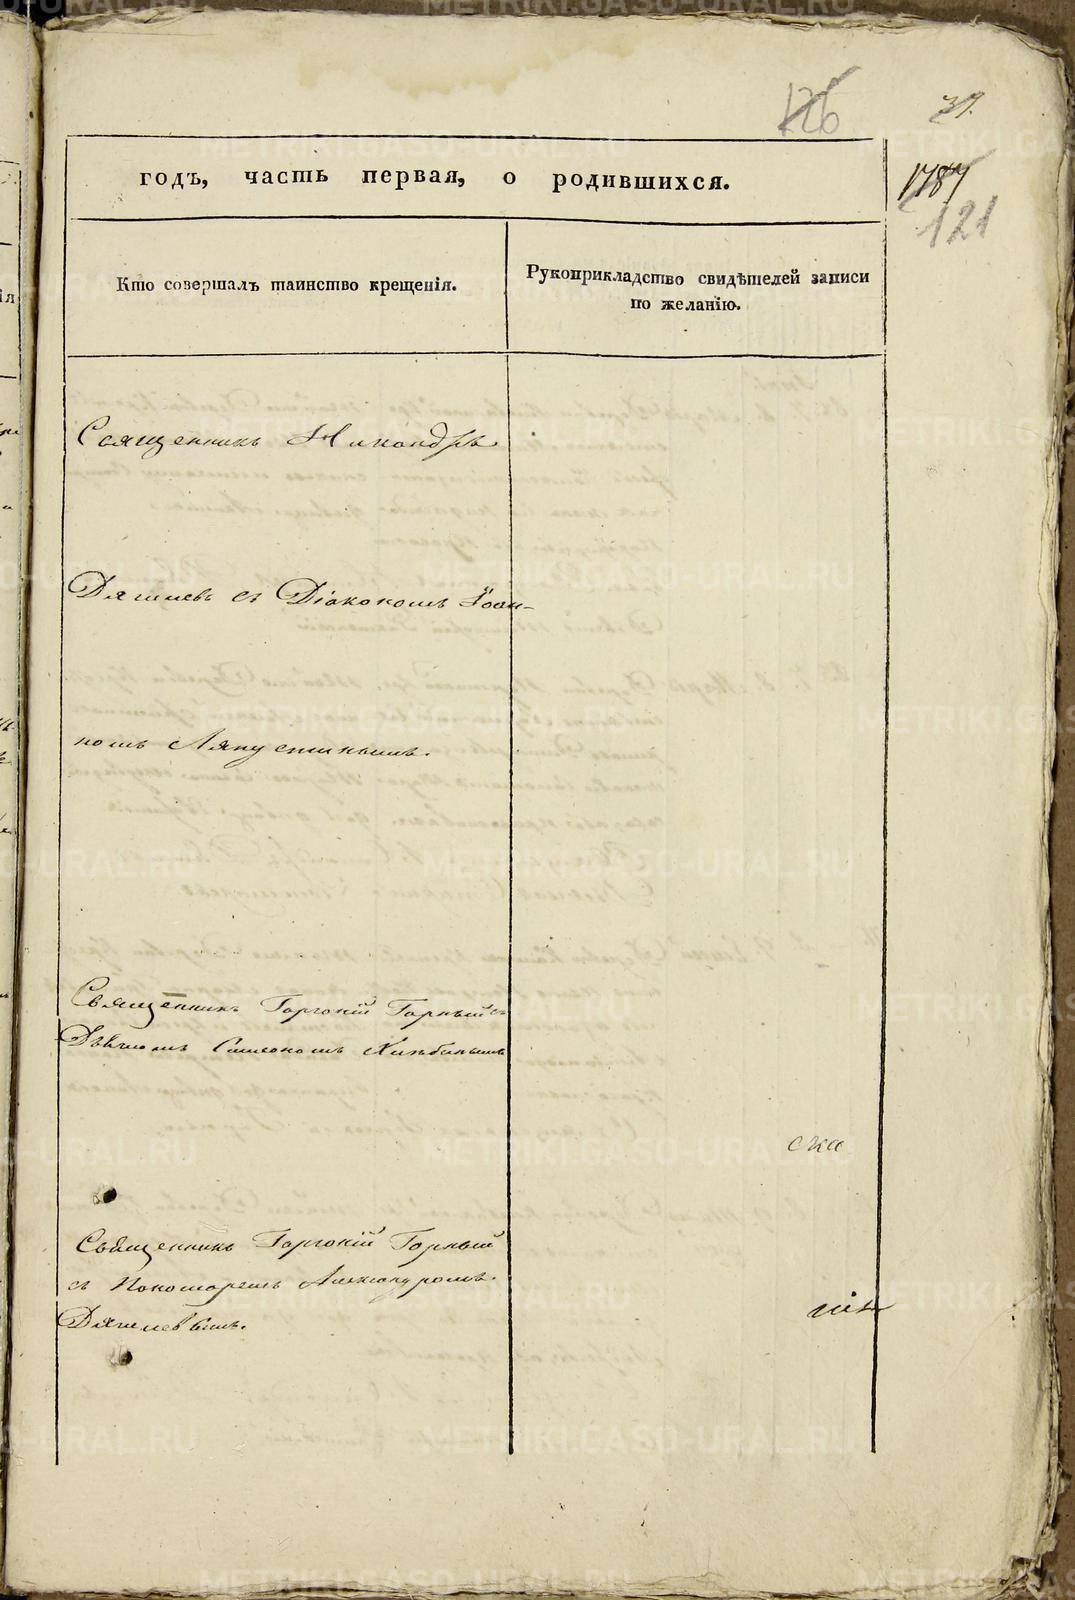 126
31.
1787
121
годъ, часть первая, о родившихся.
Кто совершалъ таинство крещенія.
Рукоприкладство свидѣтелей записи
по желанію.
Священникъ Никандръ
Дягилевъ съ Діакономъ Іоан-
номъ Ляпустинымъ.
Священникъ Горгоній Горный съ
Дьячкомъ Симеономъ Хлѣбинымъ
ска
Священникъ Горгоній Горный
съ Пономаремъ Александромъ
Дягилевымъ.
METRIKI.GASO-URAL.RU